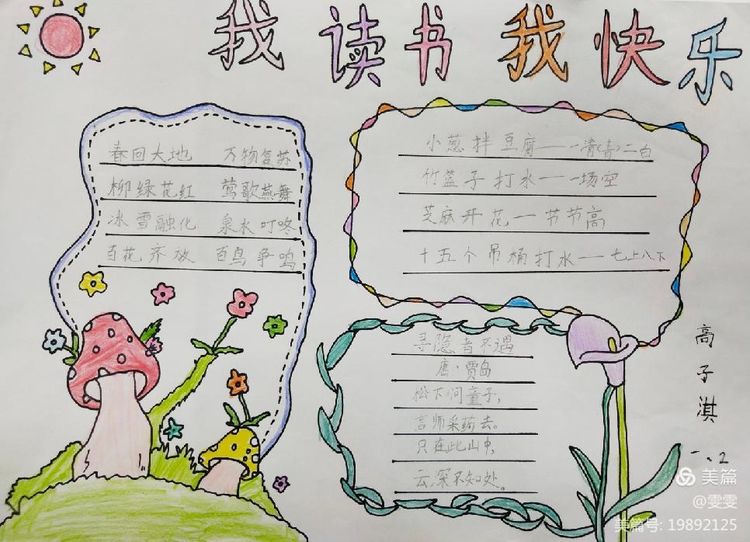 我读书我快乐
春回大地 万物复苏
柳绿花红 莺歌燕舞
冰雪融化 泉水叮咚
百花齐放 百鸟争鸣
小葱拌豆腐——一清(青)二白
竹篮子打水——一场空
芝麻开花——节节高
十五个吊桶打水——七上八下
寻隐者不遇
唐·贾岛
松下问童子,
言师采药去。
只在此山中,
云深不知处。
高子淇
一.2
美篇
@雯雯
美篇号: 19892125